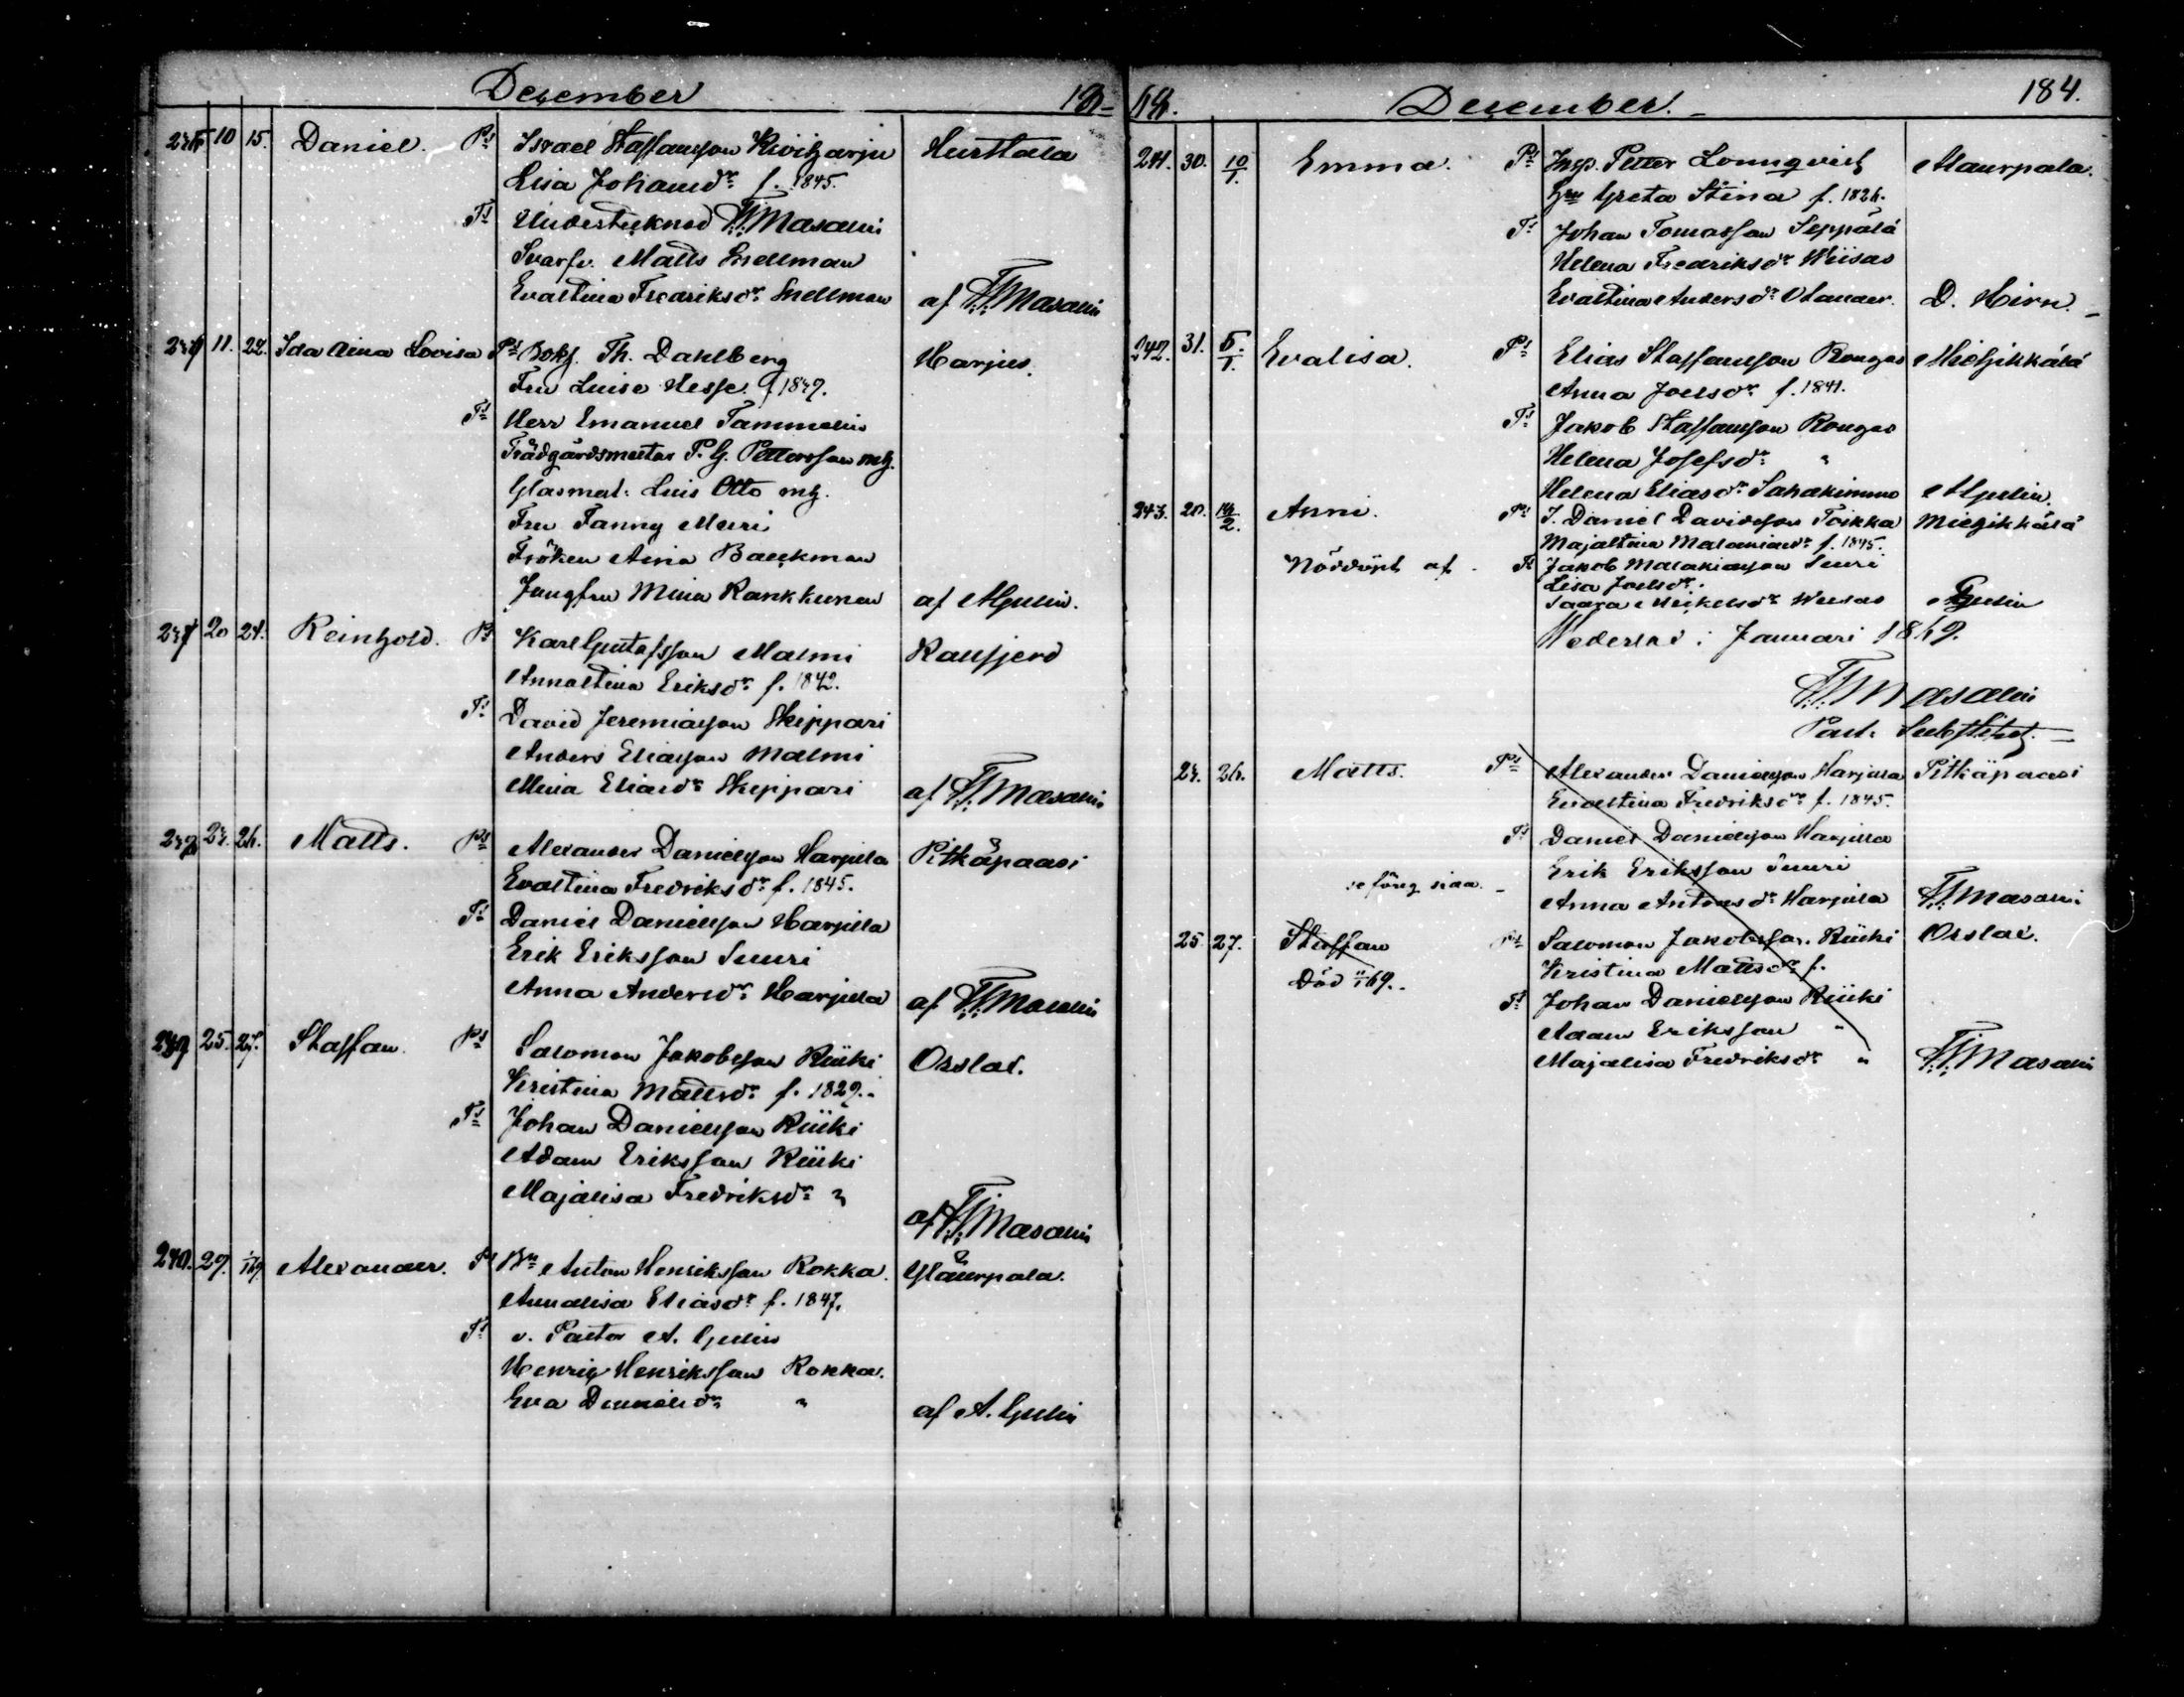 December 18
10 15. Daniel. Ps Israel Staffansson Kiviharju Hurttala
Lisa Johansdr f. 1845.
Ts Undertecknad F. Masalin
Svarfv. Matts Snellman
Evastina Fredriksdr Snellman af F. Masalin
11. 22. Ida Aina Lovisa Ps Bokh. Th. Dahlberg Harjus.
Fru Luise Hesse
Ts Herr Emanuel Tammelin
Trädgårdsmestar P. G. Pettersson mh.
Glasmat. Luis Otto mh.
Fru Fanny
Fröken Aina Backman
Jungfru Mina Rankkunen af A Gulin.
20 24. Reinhold. Ps Karl Gustafsson Malmi
Annastina Eriksdr f. 1842.
Ts David Jeremiasson Skippari
Anders Eliasson Malmi
Mina Eliasdr Skippari af F. Masalin
24. 26. Matts. Ps Alexander Danielsson Harjula Pitkäpaasi
Evastina Fredriksdr f. 1845.
Ts Daniel Danielsson Harjula
Erik Eriksson Suuri
Anna Andersdr Harjula af F. Masalin
239 25. 27. Staffan. Ps Salomon Jakobsson Riiki Orslat.
Kristina Mattsdr f. 1829.
Ts Johan Danielsson Riiki
Adam Eriksson Riiki
Majalisa Fredriksdr "
af F. Masalin
240. 29. Alexander. Ps Bn Anton Henriksson Rokka.
Annalisa Eliasdr f. 1847.
Ts v. Pastor A. Gulin
Henrig Henriksson Rokka.
Eva Danielsdr " af A. Gulin
68. December. 184.
241. 30. 10/1. Emma. Ps Insp. Petter Lönnqvist Maurpala.
Hru Greta Stina f. 1826.
Ts Johan Tomasson Seppälä
Helena Fredriksdr Wiisas
Evastina Andersdr Olander. D. Hirn.
242. 31. 5/1. Evalisa. Ps Elias Staffansson Rouges Miehikkälä
Anna Joelsdr f. 1841.
Ts Jakob Staffansson Rouges
Helena Josefsdr "
Helena Eliasdr Sahakimmo A Gulin
243. 20. 14/2. Anni. Ps I. Daniel Davidsson Toikka Miehikkälä
Majastina Malakiasdr f. 1845.
Nöddöpt af Ts Jakob Malakiasson Suuri
Lisa Joelsdr.
Saara Mickelsdr Wiisas A Gulin
Vederlad i Januari 1869.
F. Masalin
Past. Substitut.
24. 26. Matts. Ps Alexander Danielsson Harjula Pitkäpaasi
Evastina Fredriksdr f. 1845.
Ts Daniel Danielsson Harjula
Erik Eriksson Suuri
se föreg sida. Anna Andersdr Harjula F. Masalin
25. 27. Staffan Ps Salomon Jakobsson Riiki Orslat.
Död 11/1 69. Kristina Mattsdr f.
Ts Johan Danielsson Riiki
Adam Eriksson "
Majalisa Fredriksdr " F. Masalin